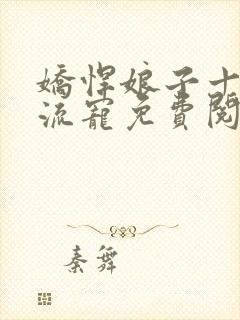 嬌悍娘子十
流寵免費閱
秦舞